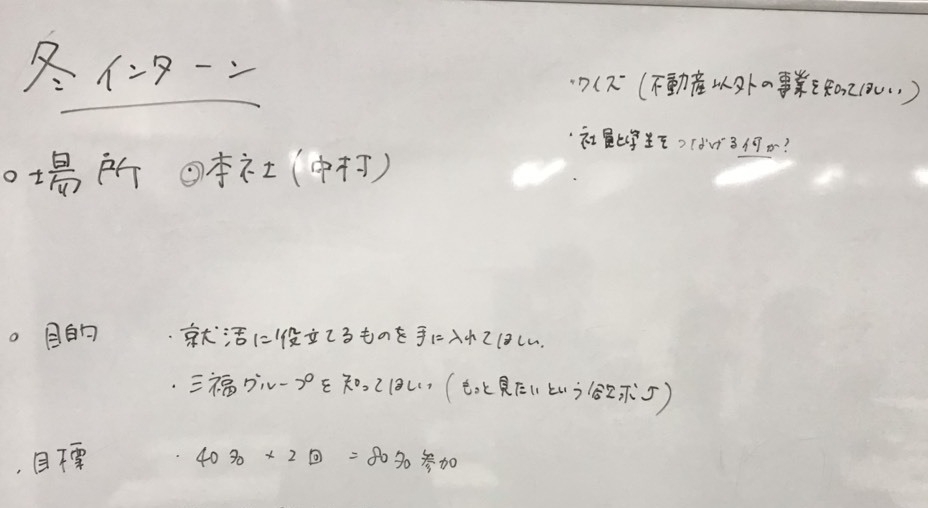 冬インターン
・クイズ（不動産以外の事業を知ってほしい）
・社員と学生をつなげる何か？
・
○場所 ◎本社（中村）
○目的 ・就活に役立てるものを手に入れてほしい。
・三福グループを知ってほしい（もっと見たいという欲求↑）
・目標 ・40名×2回=80名参加